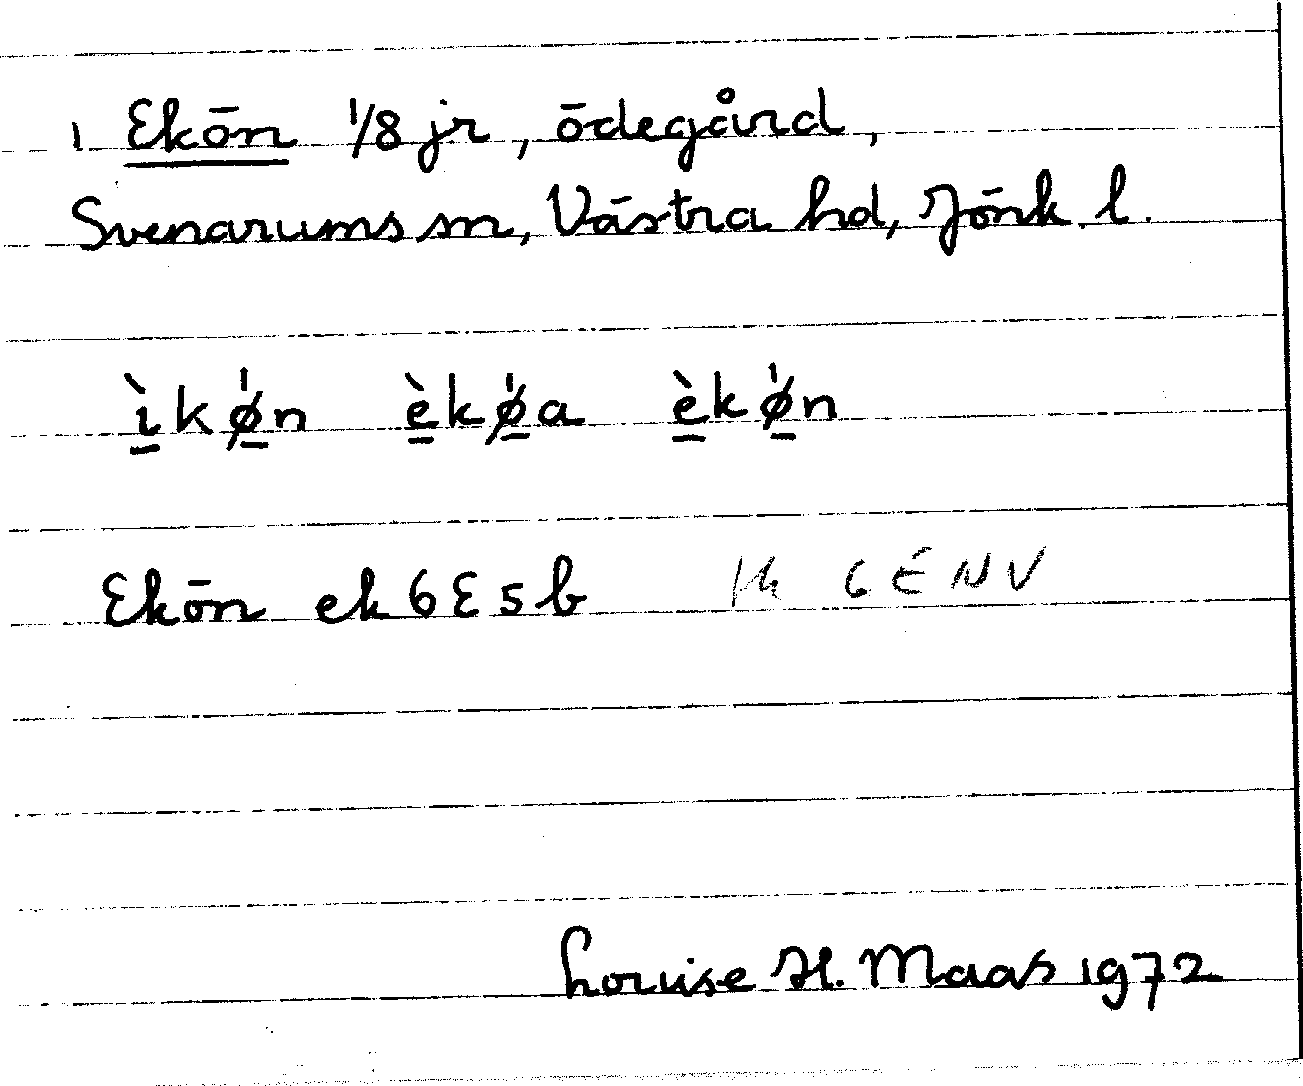 1 Ekön 1/8 jr, ödegård,
Svenarums sn, Västra hd, Jönk. l.
ı̱̀kǿ̱n è̱kǿ̱a è̱kǿ̱n
Ekön ek 6E5b 6E NV
Louise H. Maas 1972